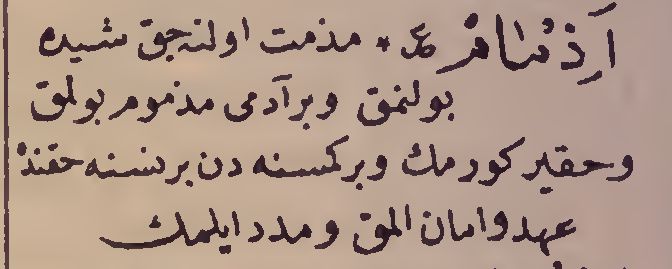 اَذْمَام ع * مذمت اولنه جق شیده
بولنمق وبر آدمی مذموم بولمق
وحقیر کورمك وبر کمسنه دن بر نسنه حقنده
عهد وامان المق ومدد ایلمك